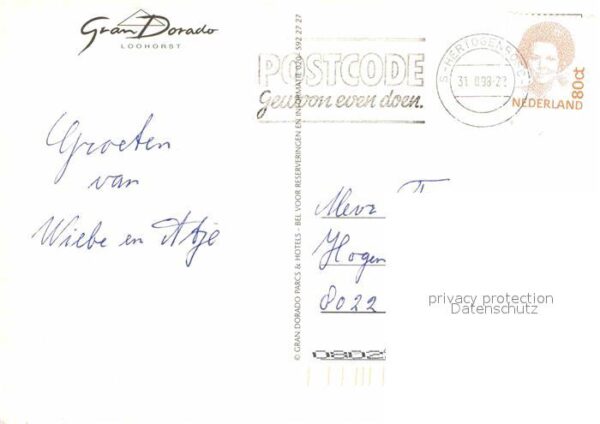 Gran Dorado
LOOHORST
POSTCODE
Gewoon even doen.
'S-HERTOGENBOSCH
80ct
NEDERLAND
Groeten
van
Wiebe en Atje
© GRAN DORADO PARCS & HOTELS - BEL VOOR RESERVERINGEN EN INFORMATIE 020 - 592 27 27
Mevr
Hogen
8022
0802
privacy protection
Datenschutz